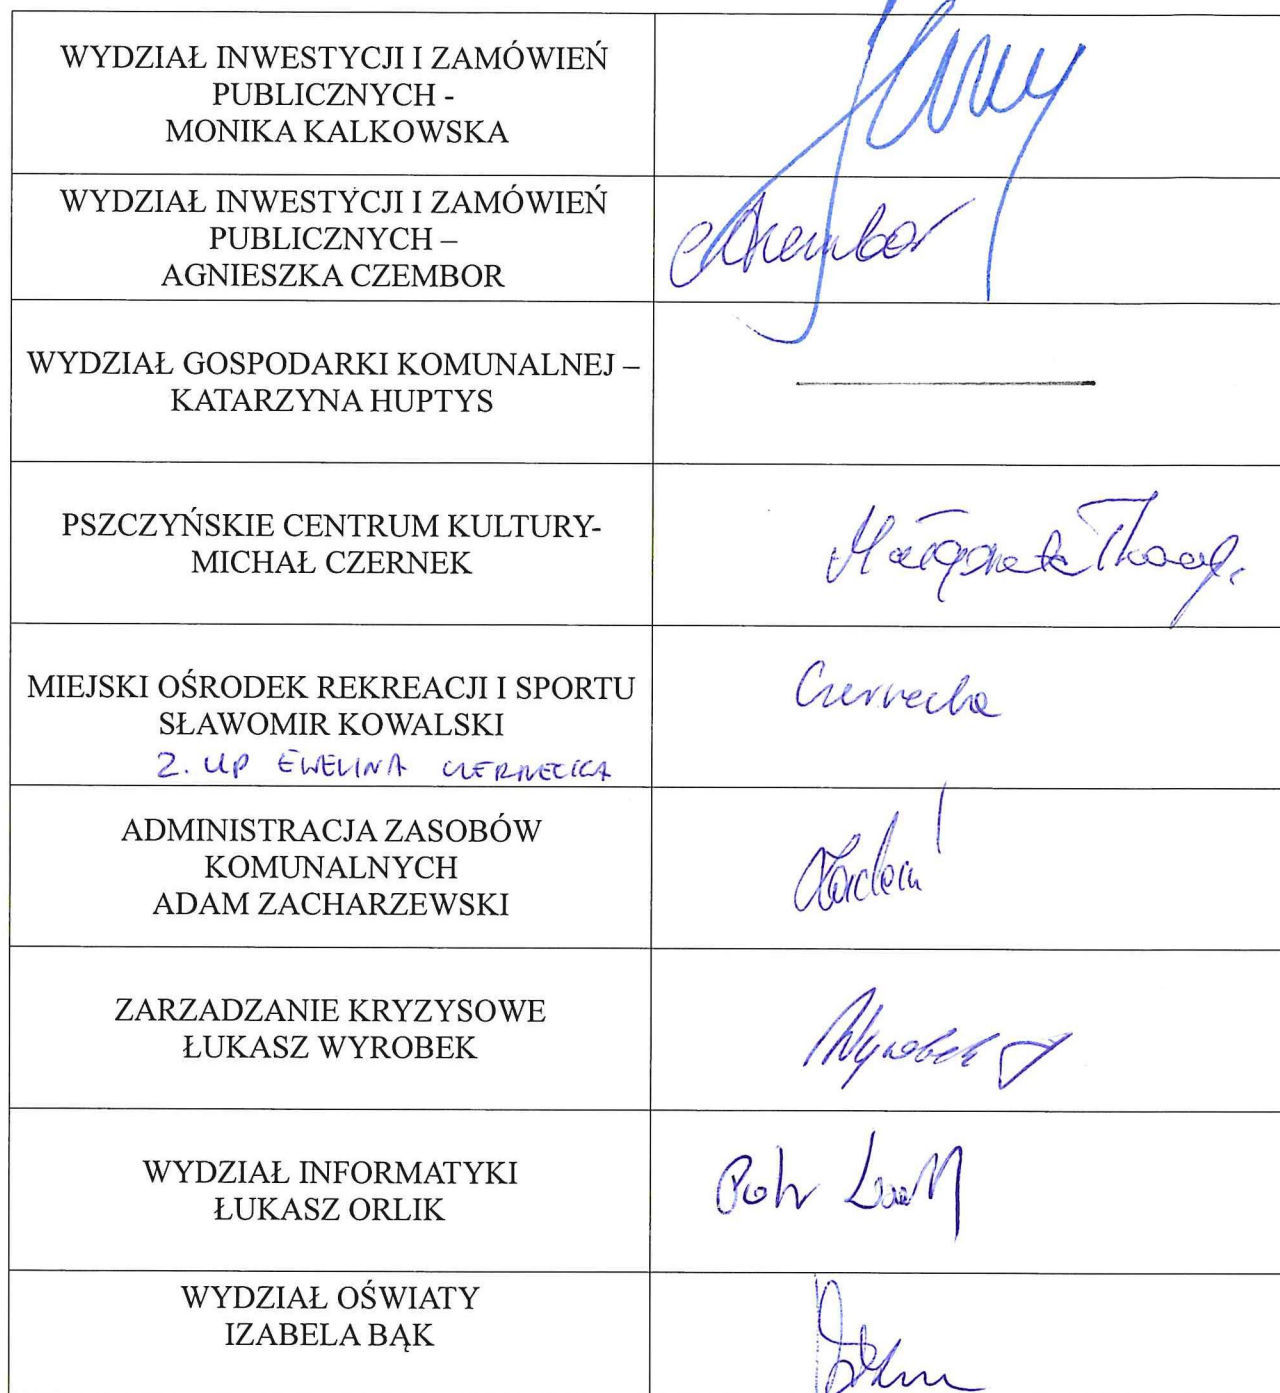 WYDZIAŁ INWESTYCJI I ZAMÓWIEŃ
PUBLICZNYCH -
MONIKA KALKOWSKA
WYDZIAŁ INWESTYCJI I ZAMÓWIEŃ
PUBLICZNYCH –
AGNIESZKA CZEMBOR
Czembor
WYDZIAŁ GOSPODARKI KOMUNALNEJ –
KATARZYNA HUPTYS
PSZCZYŃSKIE CENTRUM KULTURY-
MICHAŁ CZERNEK
Małgorzata
MIEJSKI OŚRODEK REKREACJI I SPORTU
SŁAWOMIR KOWALSKI
Z. UP EWELINA CZERNECKA
Czernecka
ADMINISTRACJA ZASOBÓW
KOMUNALNYCH
ADAM ZACHARZEWSKI
ZARZADZANIE KRYZYSOWE
ŁUKASZ WYROBEK
Wyrobek
WYDZIAŁ INFORMATYKI
ŁUKASZ ORLIK
Piotr
WYDZIAŁ OŚWIATY
IZABELA BĄK